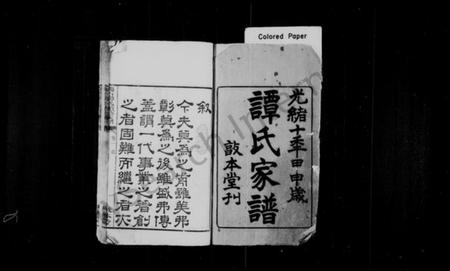 Colored Paper
光緒十年甲申歲
譚氏家譜
敦本堂刊
敘
今夫莫為之前雖美弗
彰莫為之後雖盛弗傳
蓋謂一代事業之者創
之者固難而繼之者亦